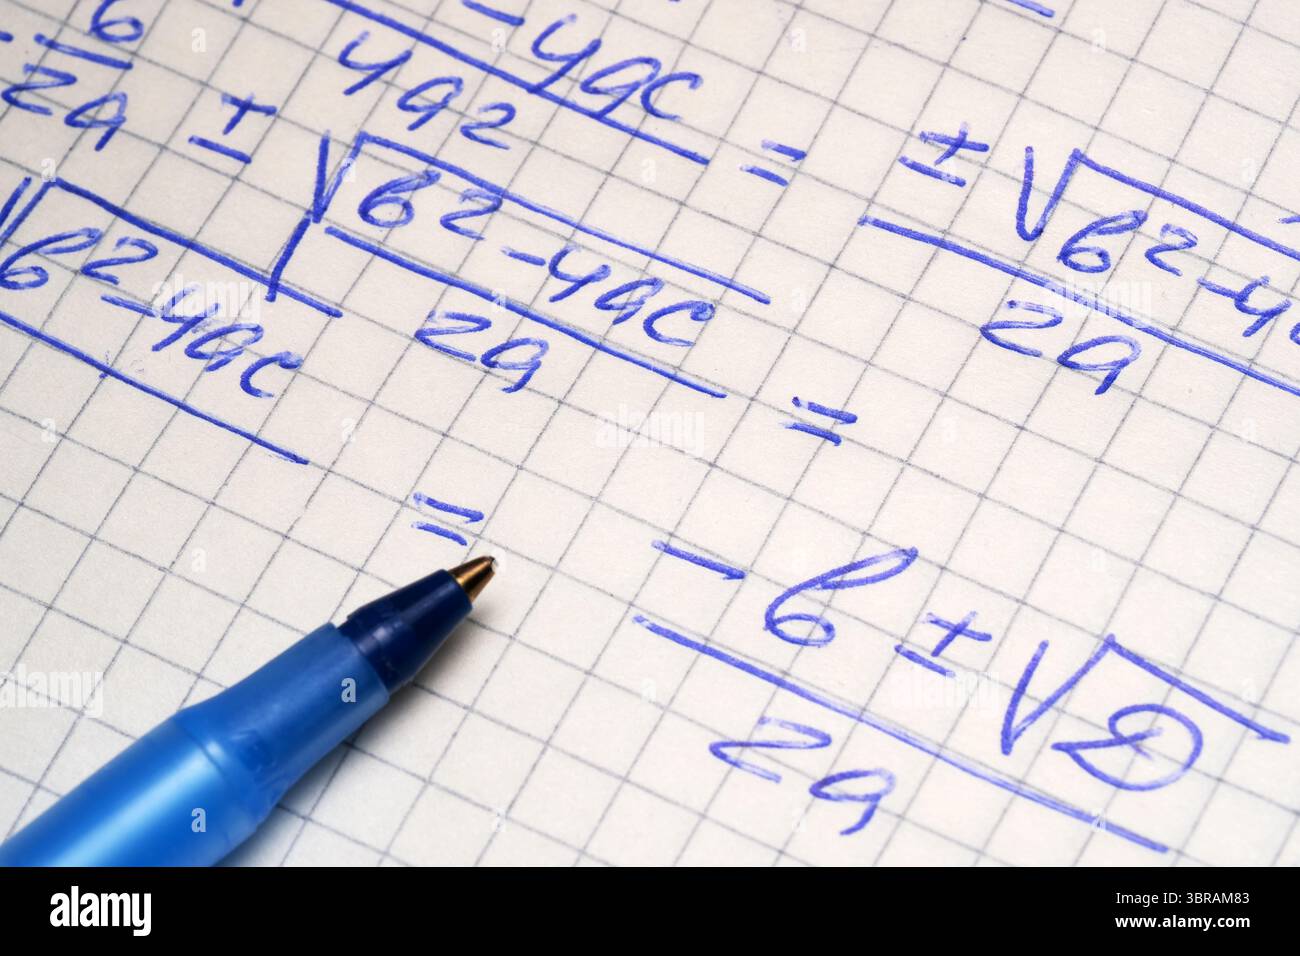 √ - 4ac / 4a² = ± √b² - 4ac / 2a
- b / 2a ± √b² - 4ac / 2a =
√b² - 4ac
= -b ± √D / 2a
alamy
Image ID: 3BRAM83
www.alamy.com